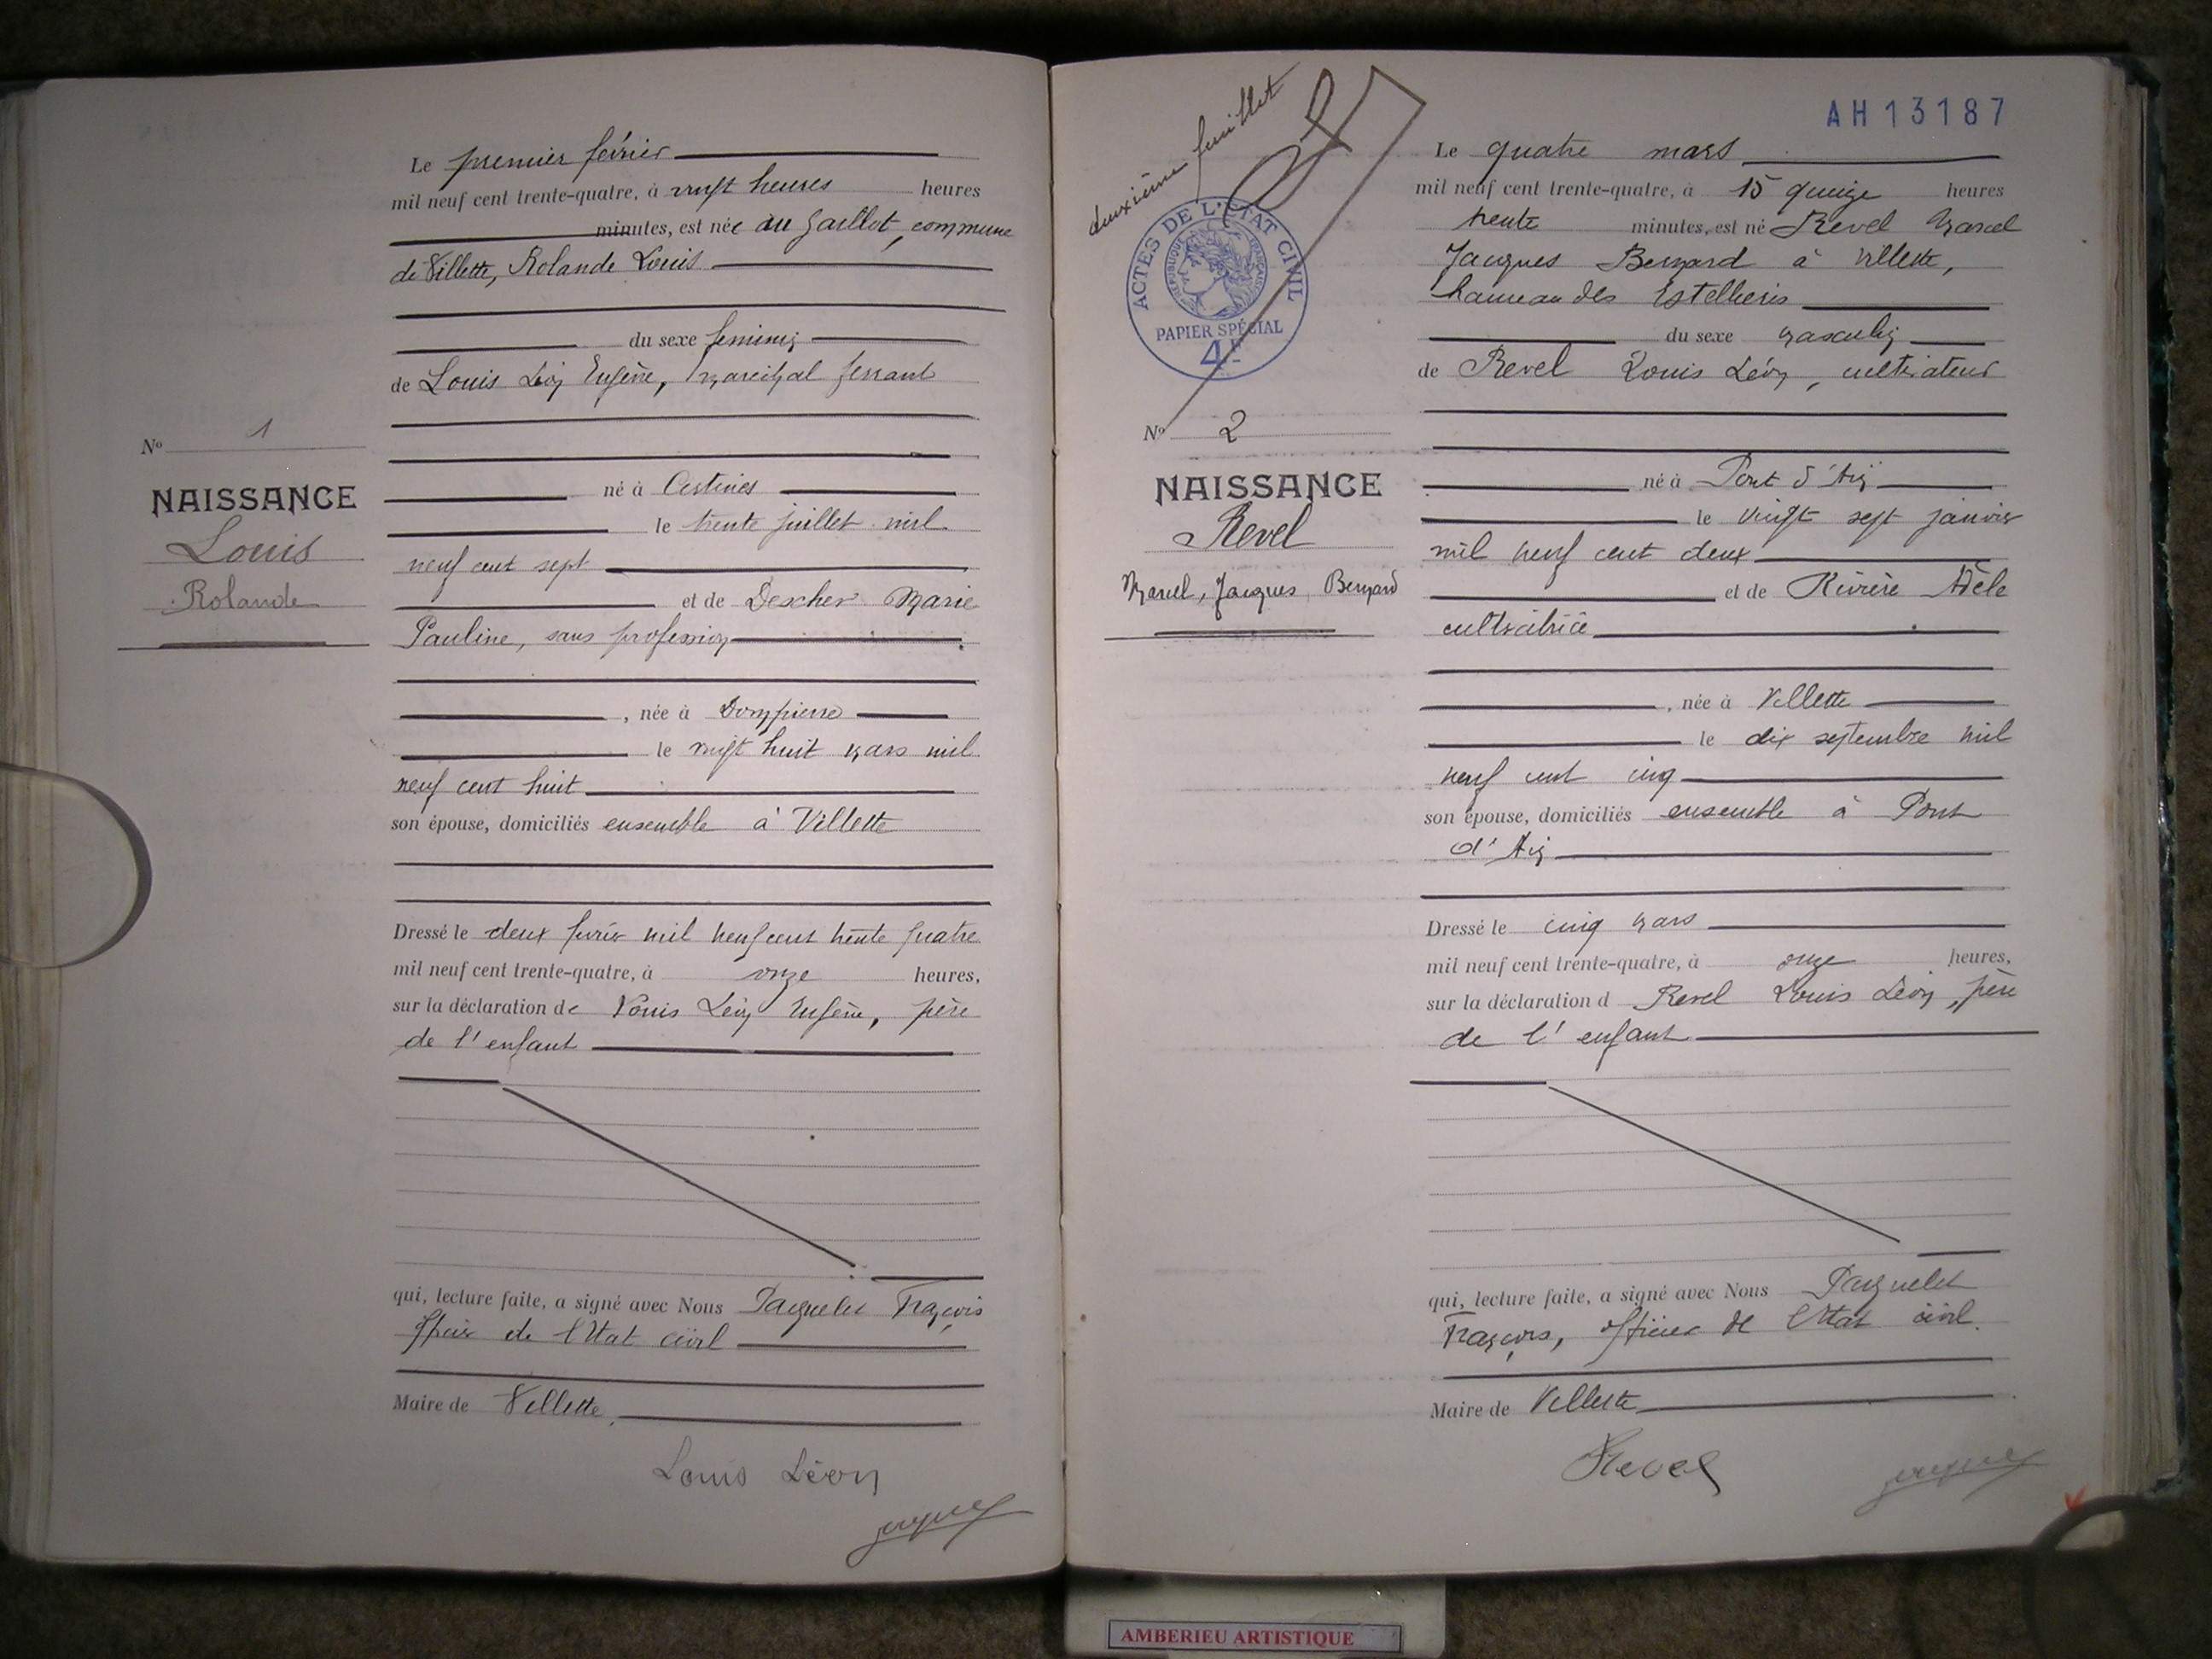 Le premier février
mil neuf cent trente-quatre, à vingt heures heures
minutes, est née au Gaillot, commune
de Villette, Rolande Louis
du sexe féminin
de Louis Léon Eugène, maréchal ferrant
né à Certines
le trente juillet mil
neuf cent sept
et de Descher Marie
Pauline, sans profession
, née à Dompierre
le vingt huit mars mil
neuf cent huit
son épouse, domiciliés ensemble à Villette
Dressé le deux février mil neuf cent trente quatre
mil neuf cent trente-quatre, à onze heures,
sur la déclaration de Louis Léon Eugène, père
de l'enfant
qui, lecture faite, a signé avec Nous François
officier de l'Etat civil
Maire de Villette
Louis Léon
No 1
NAISSANCE
Louis
Rolande
deuxième feuillet
ACTES DE L'ÉTAT CIVIL
RÉPUBLIQUE FRANÇAISE
PAPIER SPÉCIAL
4F
No 2
NAISSANCE
Revel
Marcel, Jacques, Bernard
AH13187
Le quatre mars
mil neuf cent trente-quatre, à 15 quinze heures
trente minutes, est né Revel Marcel
Jacques Bernard à Villette,
hameau des
du sexe masculin
de Revel Louis Léon, cultivateur
né à Pont d'Ain
le vingt sept janvier
mil neuf cent deux
et de Rivière Adèle
cultivatrice
, née à Villette
le dix septembre mil
neuf cent cinq
son épouse, domiciliés ensemble à Pont
d'Ain
Dressé le cinq mars
mil neuf cent trente-quatre, à onze heures,
sur la déclaration d Revel Louis Léon, père
de l'enfant
qui, lecture faite, a signé avec Nous
François, officier de l'Etat civil.
Maire de Villette
Revel
AMBERIEU ARTISTIQUE